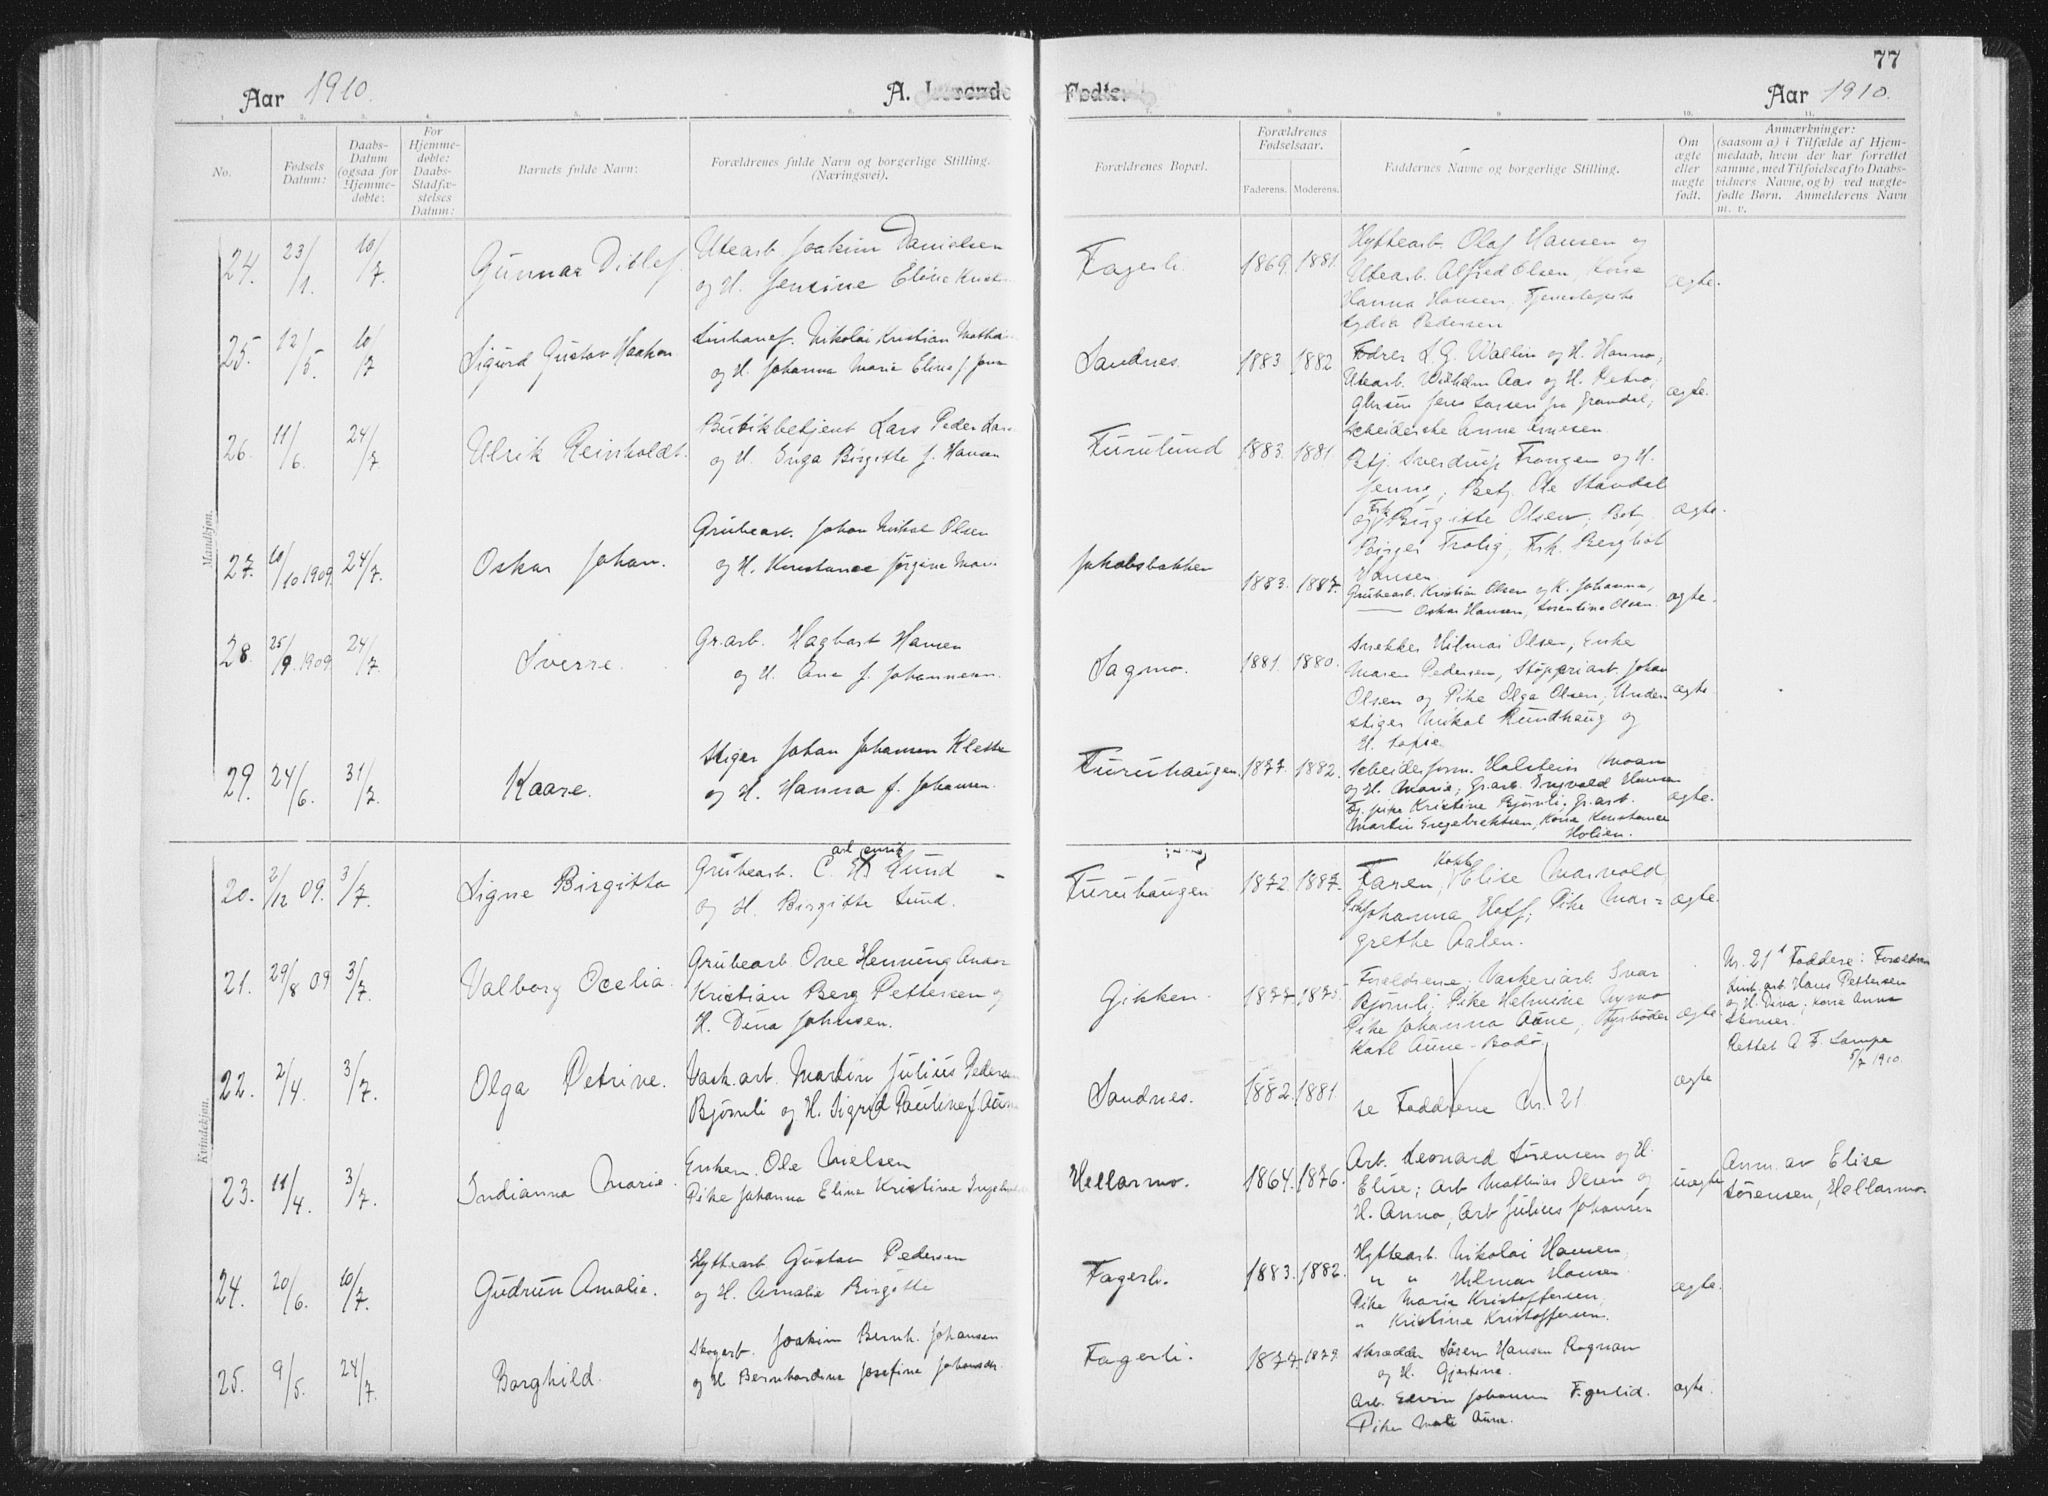 77
Aar 1910.
A. Levende Fødte.
Aar 1910.
1. 2. 3. 4. 5. 6. 7. 8. 9. 10. 11.
No.
Fødsels Datum:
Daabs-Datum (ogsaa for Hjemmedøbte:
For Hjemmedøbte: Daabs-Stadfæstelses Datum:
Barnets fulde Navn:
Forældrenes fulde Navn og borgerlige Stilling.
(Næringsvei).
Forældrenes Bopæl.
Forældrenes Fødselsaar.
Faderens. Moderens.
Faddernes Navne og borgerlige Stilling.
Om ægte eller uægte født.
Anmærkninger:
(saasom a) i Tilfælde af Hjemmedaab, hvem der har forrettet samme, med Tilføielse af to Daabsvidners Navne, og b) ved uægtefødte Børn. Anmelderens Navn m. v.
Mandkjøn.
24. 23/1. 10/7. Gunnar Ditlef. Utearb. Joakim Danielsen
og H. Jensine Eline
Fagerli. 1869. 1881.
Hyttearb. Olaf Hansen og
Utearb. Alfred Olsen, Kone
Hanna Hansen, Tjenestepike
Lydia Pedersen
ægte.
25. 12/5. 10/7 Sigurd Gustav Haakon
Nikolai Kristian
og H. Johanna Marie Eline f.
Sandnes. 1883. 1882
L. G. Wallin og H. Hanna,
Utearb. Wilhelm Aas og H. Petra,
Jens Larsen
Scheiderske Anna
ægte.
26. 11/6. 24/7 Ulrik Reinholdt. Butikbetjent Lars Peder
og H. Inga Birgitte f. Hansen
Furulund 1883. 1881
Betj. Sverdrup og H.
Jenny, Betj. Ole Standal
og Frk. Birgitte Olsen, Bet.
Birger Frolig, Frk. Bergliot
Hansen
ægte.
27. 10/10 1909. 24/7. Oskar Johan. Grubearb. Johan Nikol Olsen
og H. Konstance Jørgine
Jakobsbakken 1883. 1887.
Grubearb. Kristian Olsen og K. Johanna,
Oskar Hansen, Serentine Olsen.
ægte.
28. 25/9. 1909 24/7. Sverre. Gr.arb. Hagbart Hansen
og H. Ane f. Johannesen.
Sagmo. 1881. 1880.
Snekker Hilmar Olsen, Enke
Maren Pedersen, Støperiarb. Johan
Olsen og Pike Olga Olsen, Under
stiger Nikol Rundhaug og
H. Sofie
ægte
29. 24/6. 31/7. Kaare. Stiger Johan Johansen Klette
og H. Hanna f. Johansen.
Furuhaugen 1877. 1882.
Scheiderform. Halstein Moan
og H. Marie; Gr.arb. Ingvald Hansen
Tj. pike Kristine Bjørnli, Gr.arb.
Martin Engebrektsen, Kone Konstance
Holien.
ægte.
Kvindekjøn.
20. 2/12 09. 3/7. Signe Birgitta Grubearb. Carl Henrik Lund
og H. Birgitte Lund.
Furuhaugen 1872. 1887.
Faren, Kokke Elise Marvold,
Johanna Hoff; Pike Mar=
grethe Aalen.
ægte.
21. 29/8 09 3/7. Valborg Ocelia. Grubearb Ove Henning
Kristian Berg Pettersen og
H. Dina Johnsen.
Gikken. 1877.
Forældrene, Vaskeriarb. Ivar
Bjørnli, Pike Helmine Nymo
Pike Johanna Aune, Fyrbøder
Karl Aune - Bodø.
ægte
Nr. 21 Faddere: Forældrene
arb. Hans Pettersen
og H. Dina, Kone Anna
Rettet A F. Lampe
5/7 1910.
22. 2/4. 3/7. Olga Petrine. Vask.arb. Martin Julius Pedersen
Bjørnli og H. Sigrid Pauline f. Aune
Sandnes. 1882. 1881.
se Faddrene Nr. 21
ægte
23. 11/4. 3/7. Indianna Marie. Enkem. Ole Nielsen
Pike Johanna Eline Kristine
Hellarmo. 1864. 1876.
Arb. Leonard Sørensen og H.
Elise; Arb Mathias Olsen og
H. Anna, Arb Julius Johansen
uægte
Anm. av Elise
Sørensen, Hellarmo.
24. 20/6. 10/7. Gudrun Amalie. Hyttearb Gustav Pedersen
og H. Amalie Birgitte
Fagerli. 1883. 1882.
Hyttearb. Nikolai Hansen,
" " Hilmar Hansen
Pike Marie Kristoffersen,
" Kristine Kristoffersen.
ægte.
25. 9/5. 24/7. Borghild. Skogarb. Joakim Bernh. Johansen
og H Bernhardine Josefine
Fagerli. 1874. 1879.
Skrædder Søren Hansen Rognan
og H. Gjertine.
Arb. Edvin Johansen Fagerlid.
Pike Aune.
ægte.